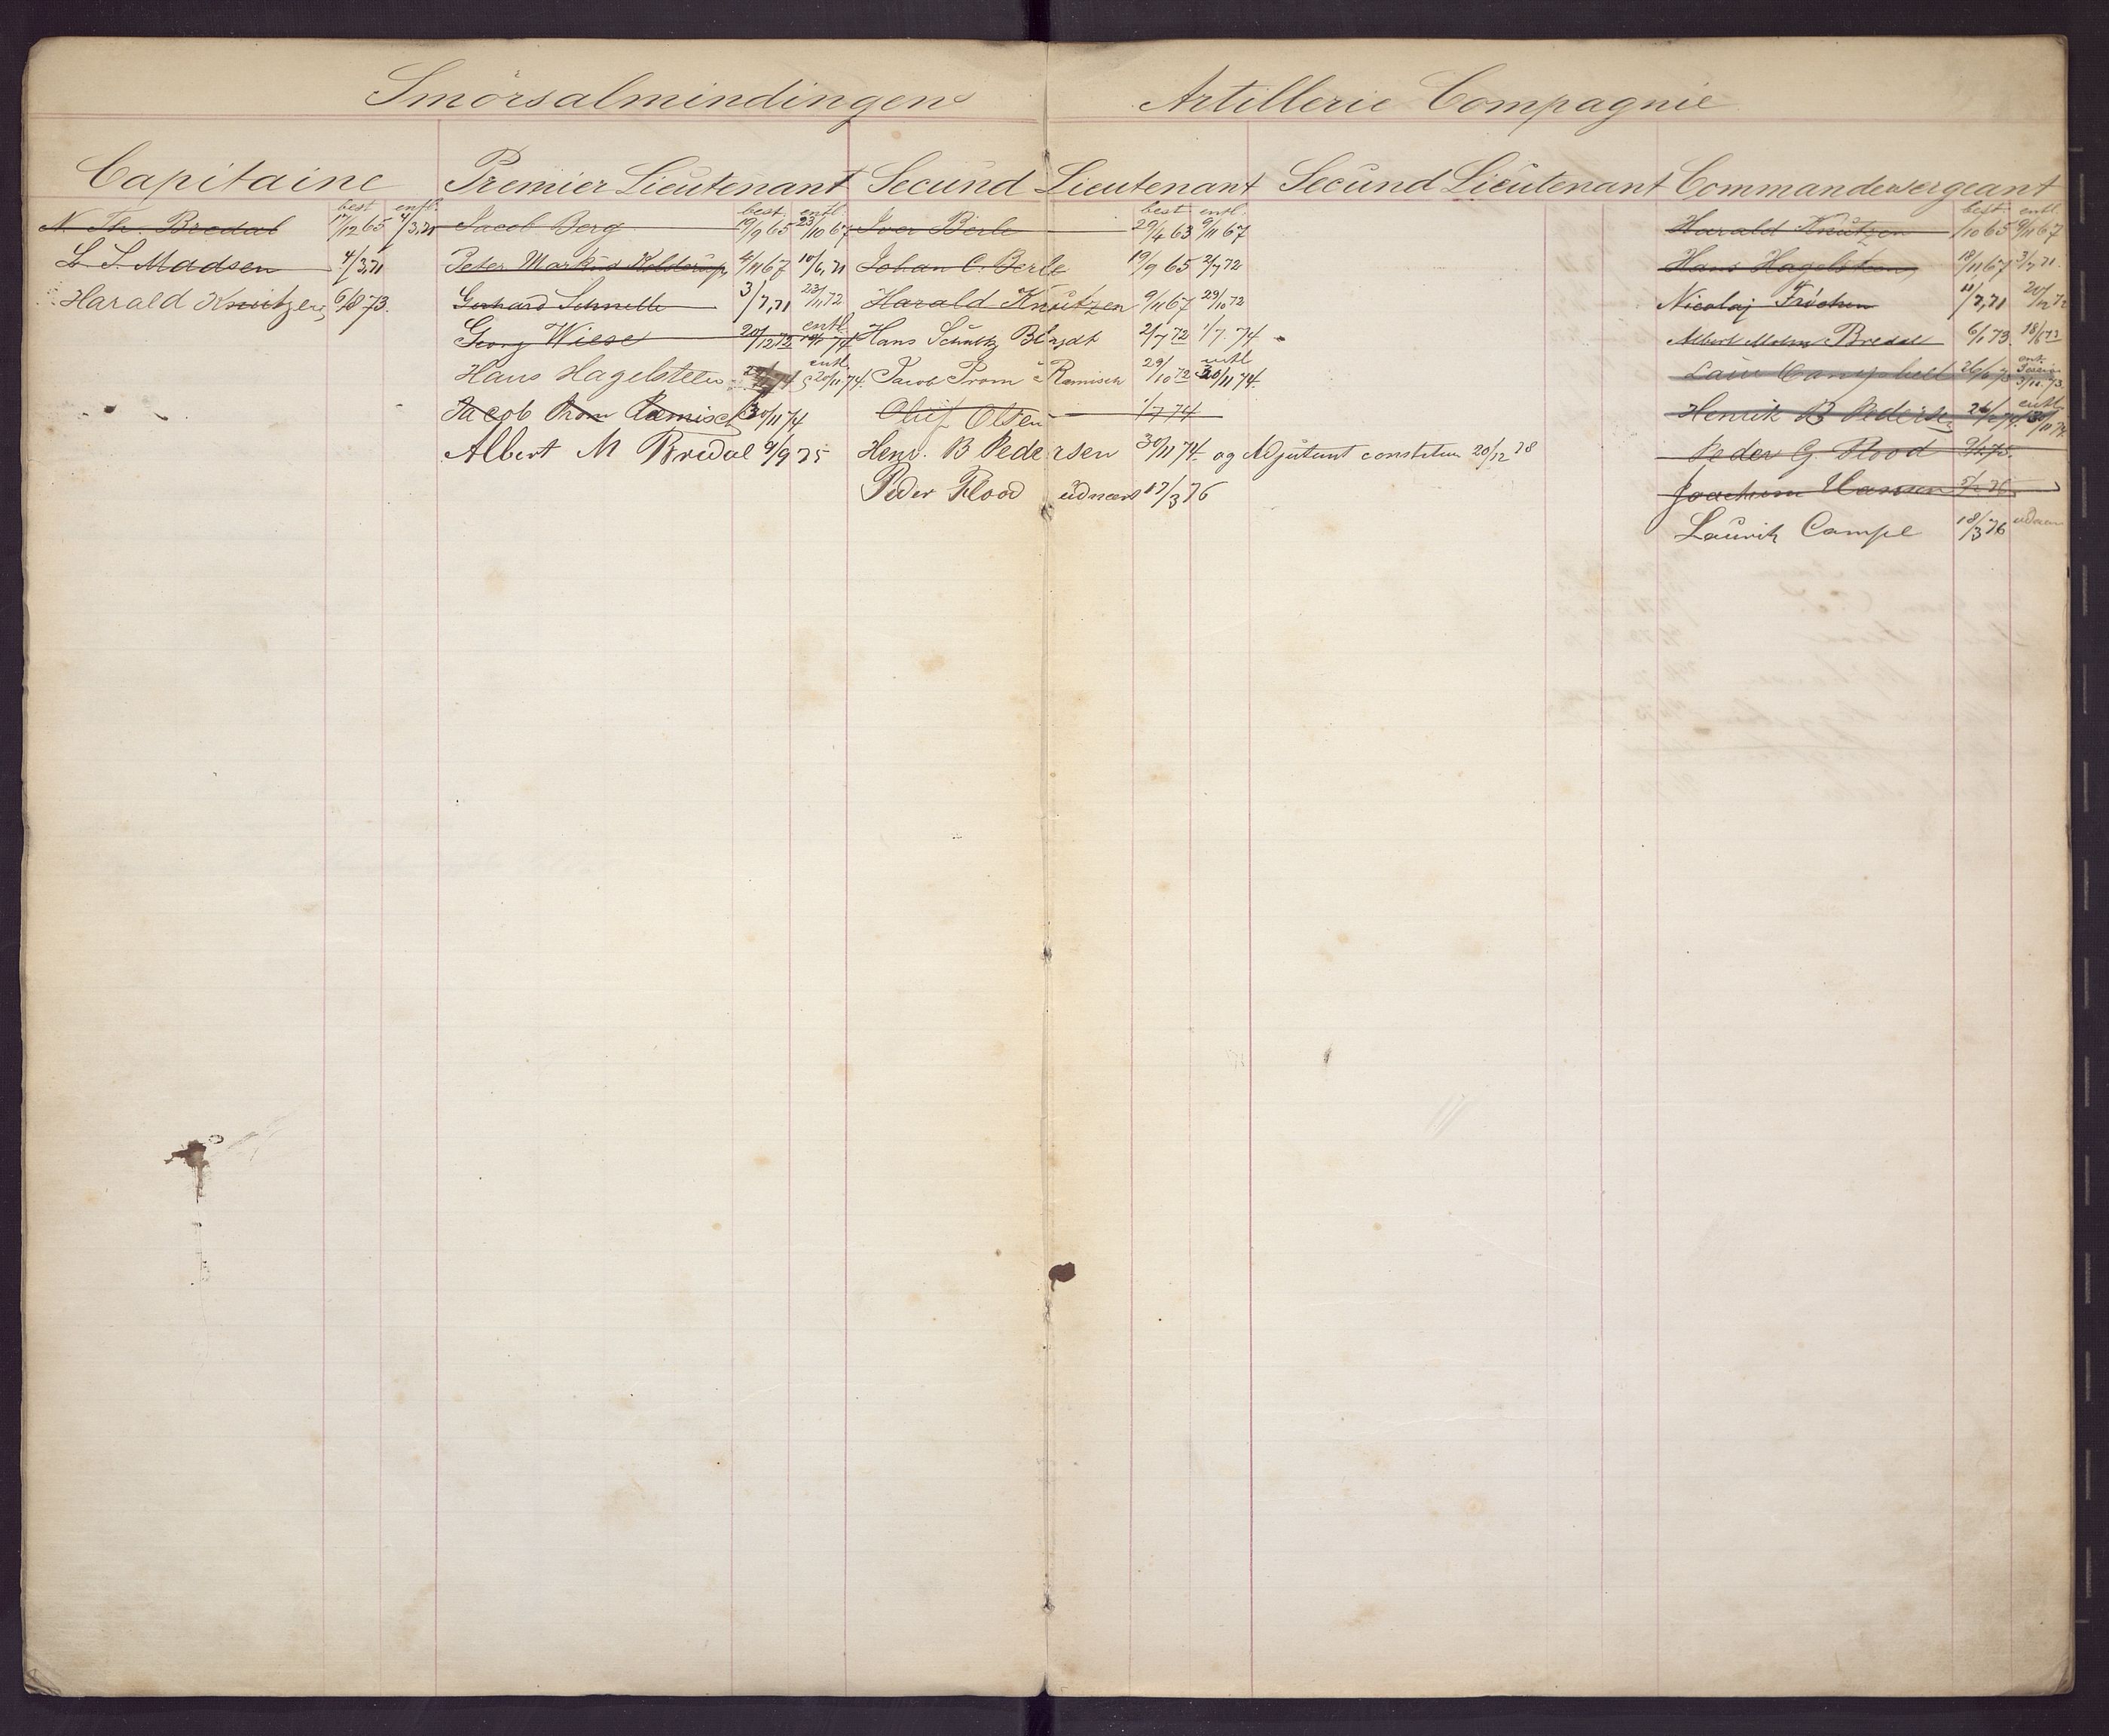 Smörsalmindingens Artillerie Compagnie
Capitaine Premier Lieutenant Secund Lieutenant Secund Lieutenant Commandersergeant
best entl. best entl. best entl. best entl.
N. Th. Bredal 17/12 65 4/3,71 Jacob Berg 19/9 65 23/10 67 Iver Berle 29/4 63 9/11 67 Harald Knutzen /10 65 9/11 67
L. S. Madsen 4/3,71 Peter Markus Kolderup 4/11 67 10/6,71 Johan C. Berle 19/9 65 2/7 72 Hans Hagelsteen 18/11 67 3/7 71.
Harald Knutzen 6/8 73. Gerhard Schnelle 3/7,71 23/11 72 Harald Knutzen 9/11 67 29/10 72 Nicolaj Fröchen 11/7,71 20/12 72
Georg Wiese 20/12 72 entl. 74 Hans Schultz Blydt 2/7 72 1/7. 74 Albert Molm Bredal 6/1 73. 18/6 73
Hans Hagelsteen entl 20/11 74. Jacob Prom Ramisch 29/10 72 entl 30/11 74. Laur Campbell 26/6 73 entl
Jacob Prom Ramisch 30/11 74 Oluf Olsen 1/7 74 Henrik B Pedersen 26/ 74. entl 30/11 74.
Albert M Bredal 9/9 75 Henr. B Pedersen 30/11 74. og Adjutant constitu 20/12 78 Peder G. Flood 75.
Peder Flood udnævnt 17/3 76 Joachim Hansen 5/ 76.
Lauritz Campe 18/3 76 udnævn